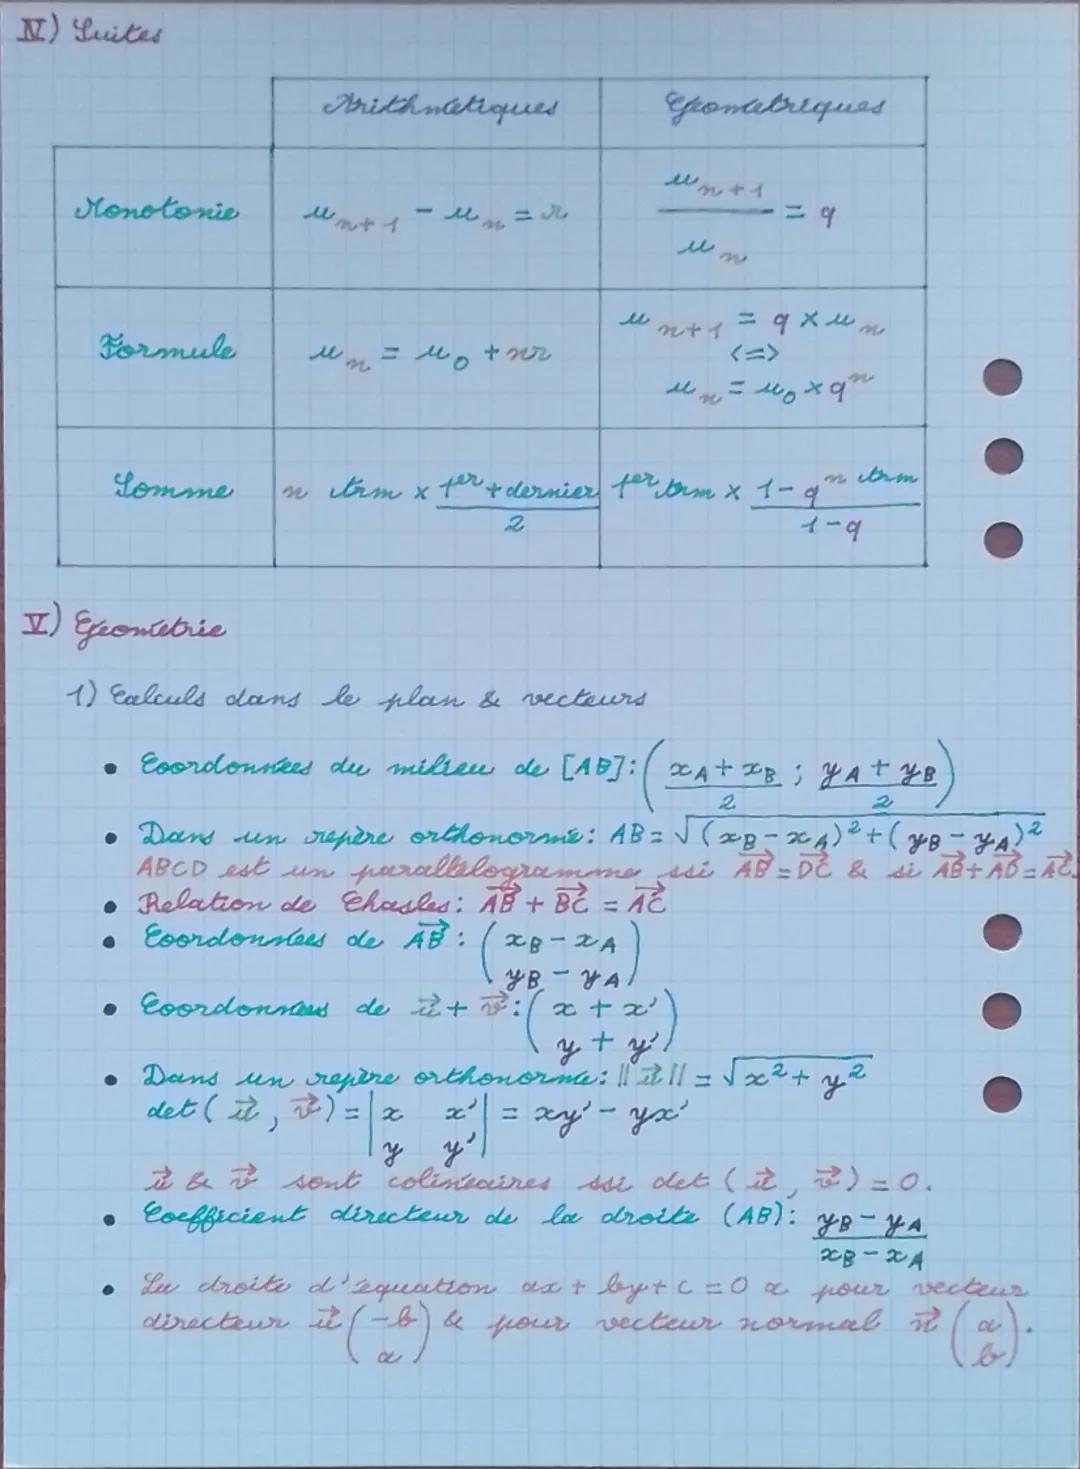 IV) Suites
Arithmétiques Géométriques
Monotonie u_{n+1} - u_n = r u_{n+1} / u_n = q
Formule u_n = u_0 + nr u_{n+1} = q × u_n
<=>
u_n = u_0 × q^n
Somme n trm × (1er + dernier)/2 1er trm × (1 - q^{n trm})/(1 - q)
V) Géométrie
1) Calculs dans le plan & vecteurs
• Coordonnées du milieu de [AB]: ((x_A + x_B)/2 ; (y_A + y_B)/2)
• Dans un repère orthonormé: AB = √((x_B - x_A)² + (y_B - y_A)²)
ABCD est un parallélogramme ssi AB⃗ = DC⃗ & si AB⃗ + AD⃗ = AC⃗.
• Relation de Chasles: AB⃗ + BC⃗ = AC⃗
• Coordonnées de AB⃗ : (x_B - x_A
y_B - y_A)
• Coordonnées de u⃗ + v⃗ : (x + x'
y + y')
• Dans un repère orthonormé: ||u⃗|| = √(x² + y²)
det(u⃗, v⃗) = |x x'| = xy' - yx'
|y y'|
u⃗ & v⃗ sont colinéaires ssi det (u⃗, v⃗) = 0.
• Coefficient directeur de la droite (AB): (y_B - y_A)/(x_B - x_A)
• La droite d'équation ax + by + c = 0 a pour vecteur
directeur u⃗ (-b
a) & pour vecteur normal n⃗ (a
b).